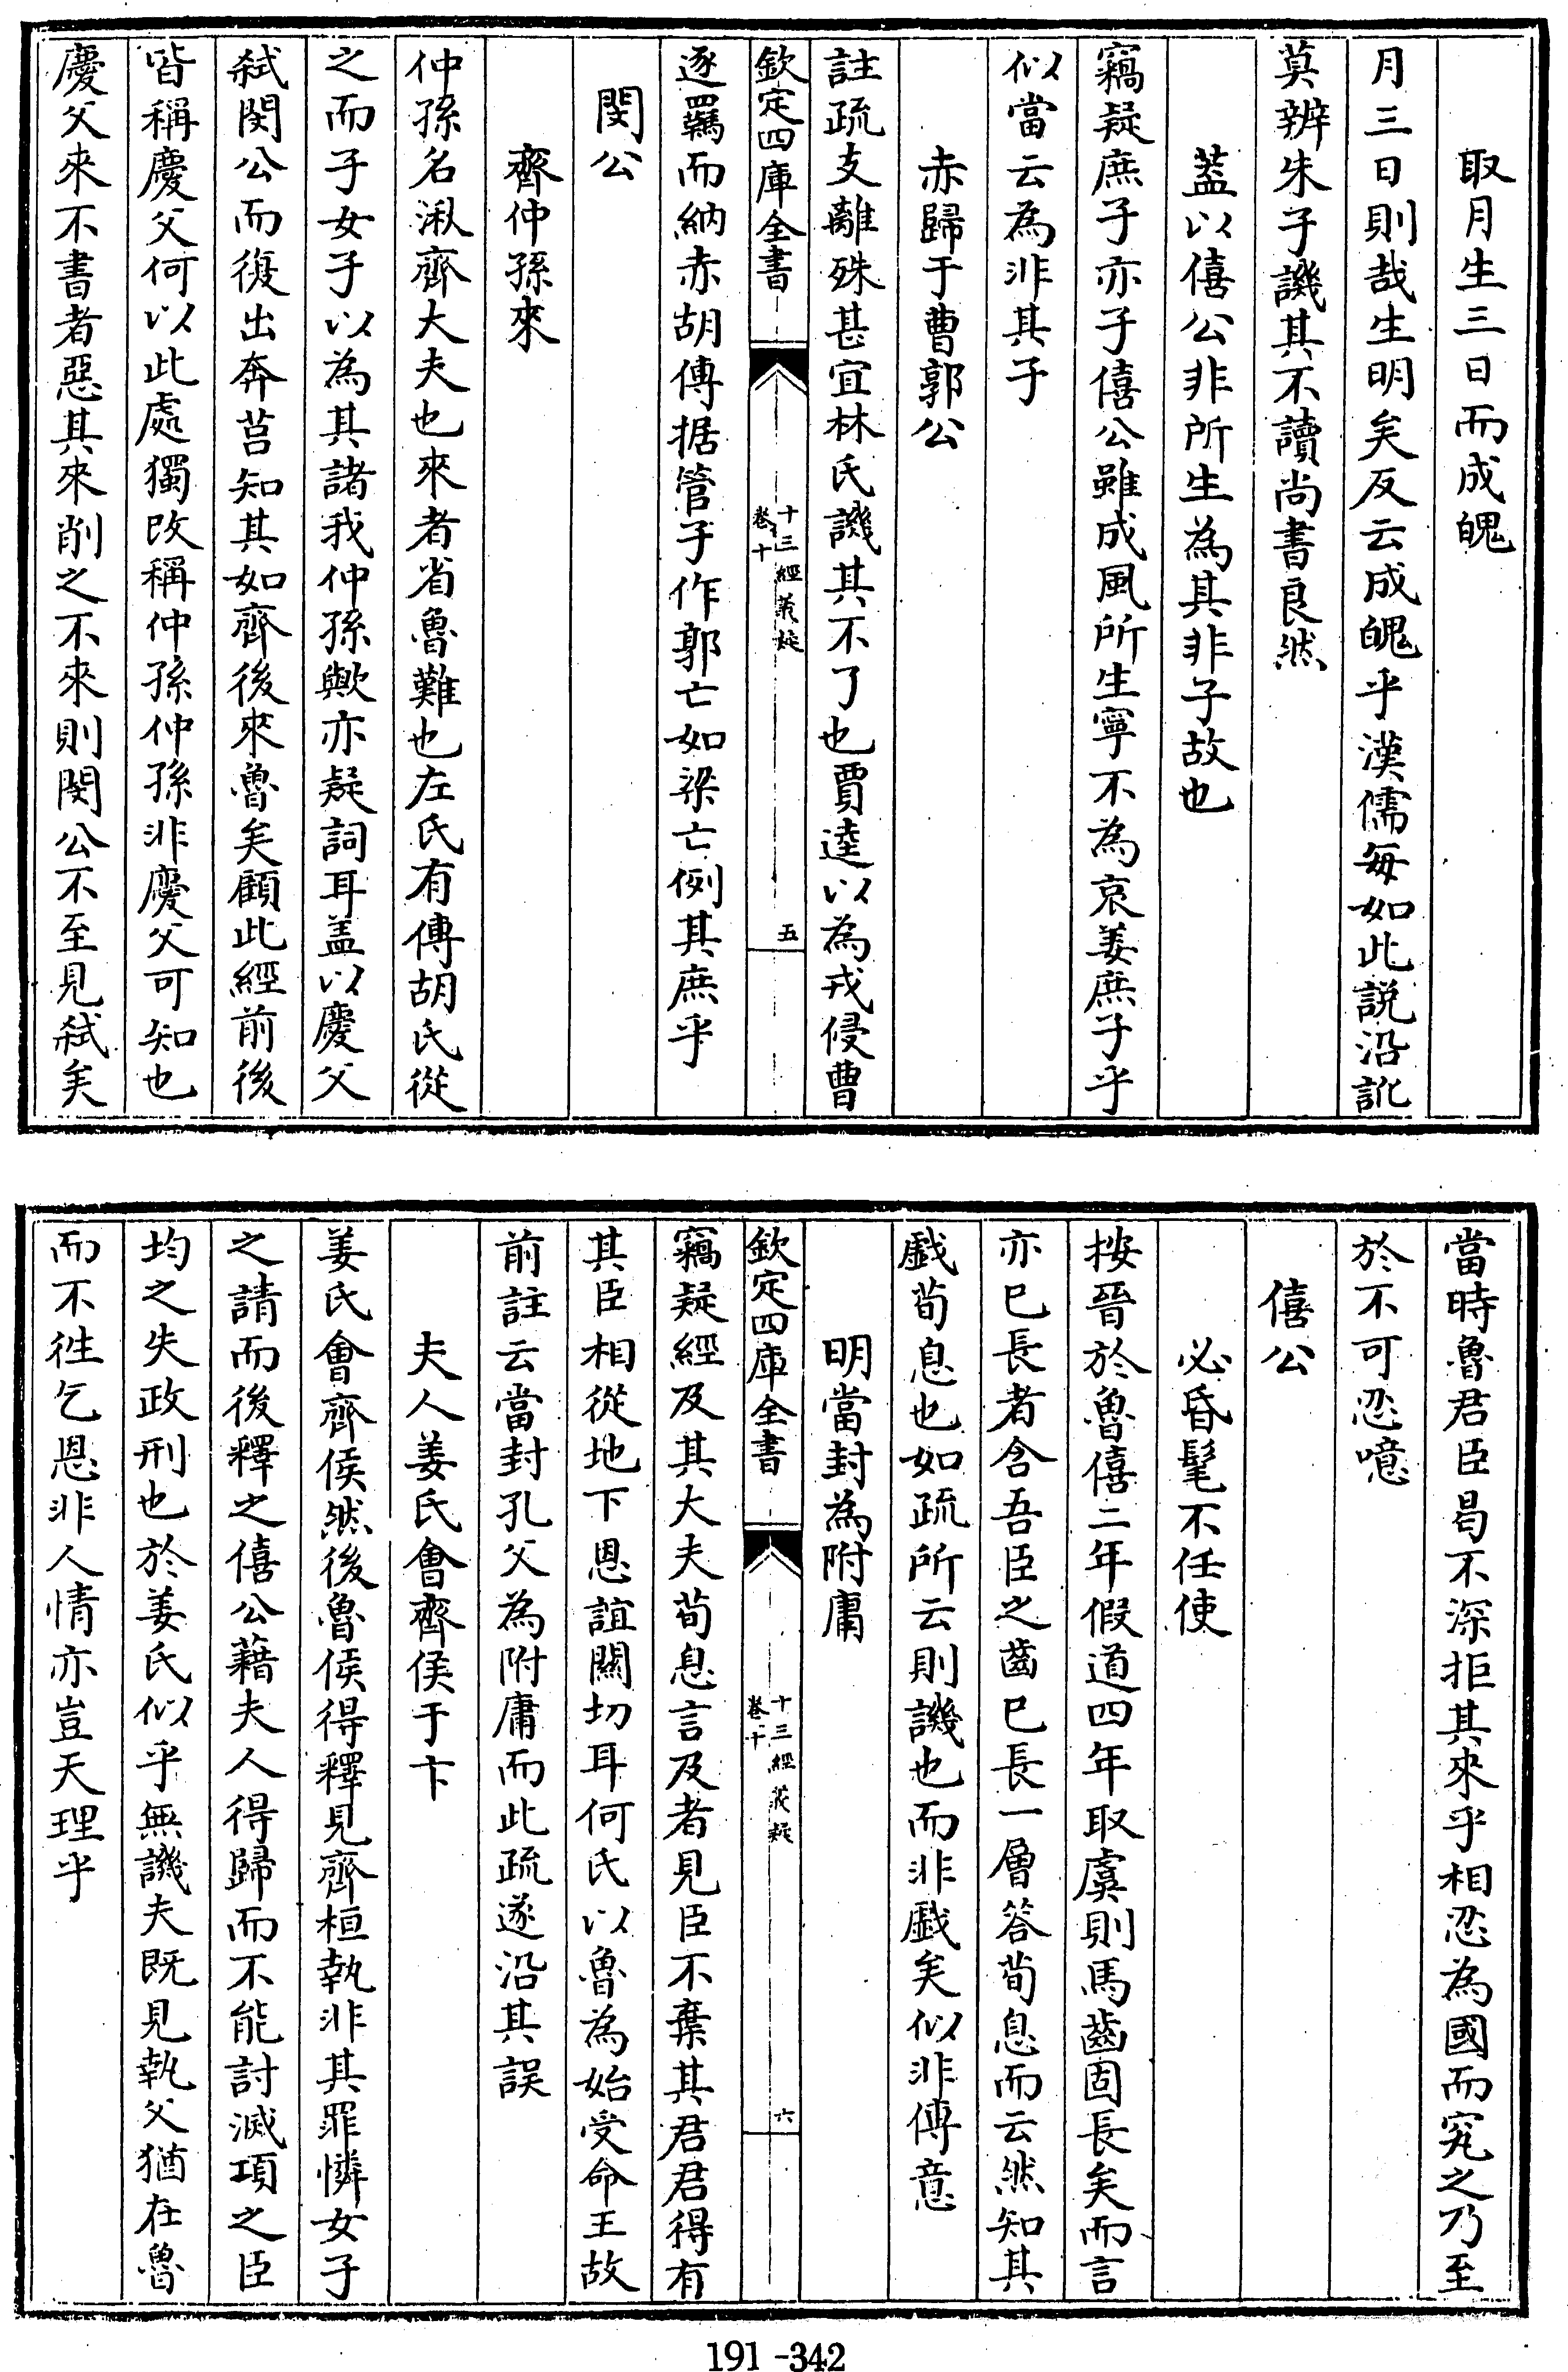 取月生三日而成魄
月三日則哉生明矣反云成魄乎漢儒每如此説沿訛
莫辨朱子譏其不讀尚書良然
蓋以僖公非所生為其非子故也
竊疑庶子亦子僖公雖成風所生寧不為哀姜庶子乎
似當云為非其子
赤歸于曹郭公
註疏支離殊甚宜林氏譏其不了也賈逵以為戎侵曹
欽定四庫全書
十三經義疑
卷十
五
逐羈而納赤胡傳据管子作郭亡如梁亡例其庶乎
閔公
齊仲孫來
仲孫名湫齊大夫也來者省魯難也左氏有傳胡氏從
之而子女子以為其諸我仲孫歟亦疑詞耳盖以慶父
弑閔公而復出奔莒知其如齊後來魯矣顧此經前後
皆稱慶父何以此處獨改稱仲孫仲孫非慶父可知也
慶父來不書者惡其來削之不來則閔公不至見弑矣
當時魯君臣曷不深拒其來乎相忍為國而究之乃至
於不可忍噫
僖公
必昏髦不任使
按晉於魯僖二年假道四年取虞則馬齒固長矣而言
亦已長者含吾臣之齒已長一層答荀息而云然知其
戲荀息也如疏所云則譏也而非戲矣似非傳意
明當封為附庸
欽定四庫全書
十三經義疑
卷十
六
竊疑經及其大夫荀息言及者見臣不棄其君君得有
其臣相從地下恩誼關切耳何氏以魯為始受命王故
前註云當封孔父為附庸而此疏遂沿其誤
夫人姜氏會齊侯于卞
姜氏會齊侯然後魯侯得釋見齊桓執非其罪憐女子
之請而後釋之僖公藉夫人得歸而不能討滅項之臣
均之失政刑也於姜氏似乎無譏夫既見執父猶在魯
而不徃乞恩非人情亦豈天理乎
191-342